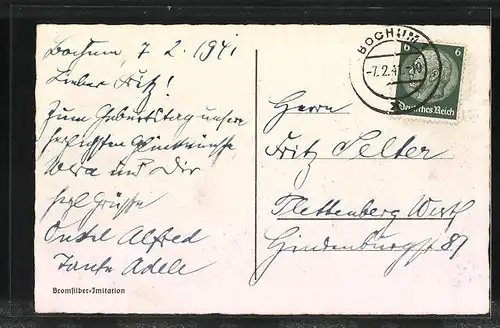 Bochum, 7 2. 1941
Lieber Fritz!
Zum Geburtstag unsere
herzlichsten Glückwünsche,
und Dir
hzl Grüße
Onkel Alfred
Tante Adele
Bromsilber-Imitation
BOCHUM
-7.2.41
6 6
Deutsches Reich
Herrn
Fritz Selter
Plettenberg Westf
Hindenburgstr 81